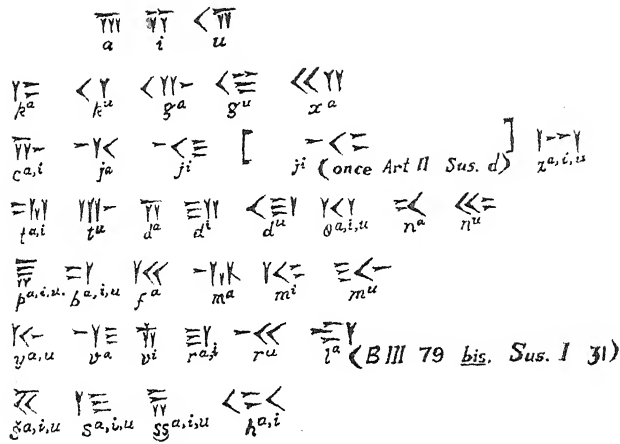 𐎠 𐎡 𐎢
a i u
𐎣 𐎤 𐎥 𐎦 𐎧
kᵃ kᵘ gᵃ gᵘ xᵃ
𐎨 𐎩 𐎪 [ ] 𐏀
cᵃ,ⁱ jᵃ jⁱ jⁱ (once Art II Sus. d) zᵃ,ⁱ,ᵘ
𐎫 𐎬 𐎭 𐎮 𐎯 𐎰 𐎴 𐎵
tᵃ,ⁱ tᵘ dᵃ dⁱ dᵘ θᵃ,ⁱ,ᵘ nᵃ nᵘ
𐎱 𐎲 𐎳 𐎶 𐎷 𐎸
pᵃ,ⁱ,ᵘ. bᵃ,ⁱ,ᵘ fᵃ mᵃ mⁱ mᵘ
𐎹 𐎺 𐎻 𐎼 𐎽 𐎾
yᵃ,ᵘ vᵃ vⁱ rᵃ,ⁱ rᵘ lᵃ (B III 79 bis. Sus. I 31)
𐏁 𐎿 𐏂 𐏃
šᵃ,ⁱ,ᵘ sᵃ,ⁱ,ᵘ ssᵃ,ⁱ,ᵘ hᵃ,ⁱ